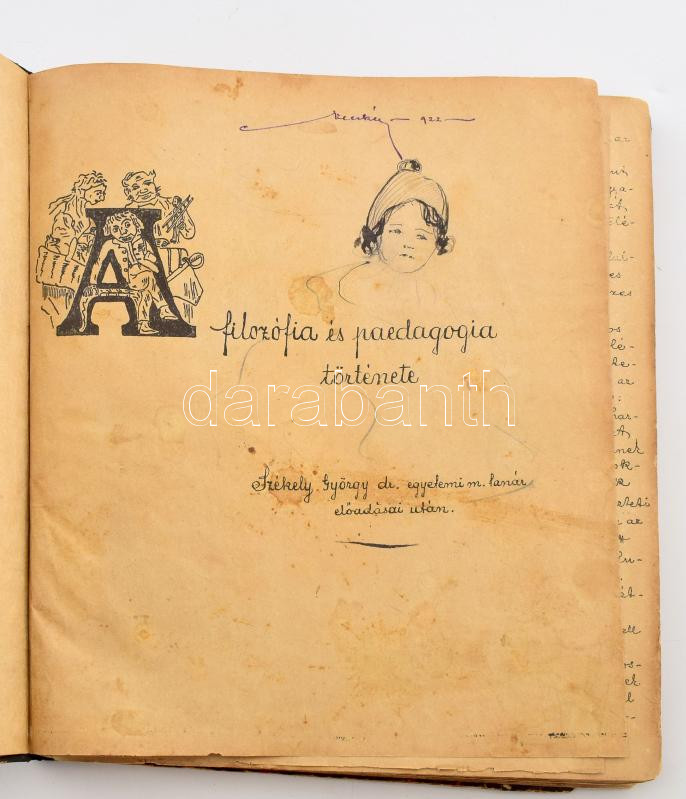 922
A
filozófia és paedagogia
története
darabanth
Székely György dr. egyetemi m. tanár
előadásai után.
az
es
os
az
nek